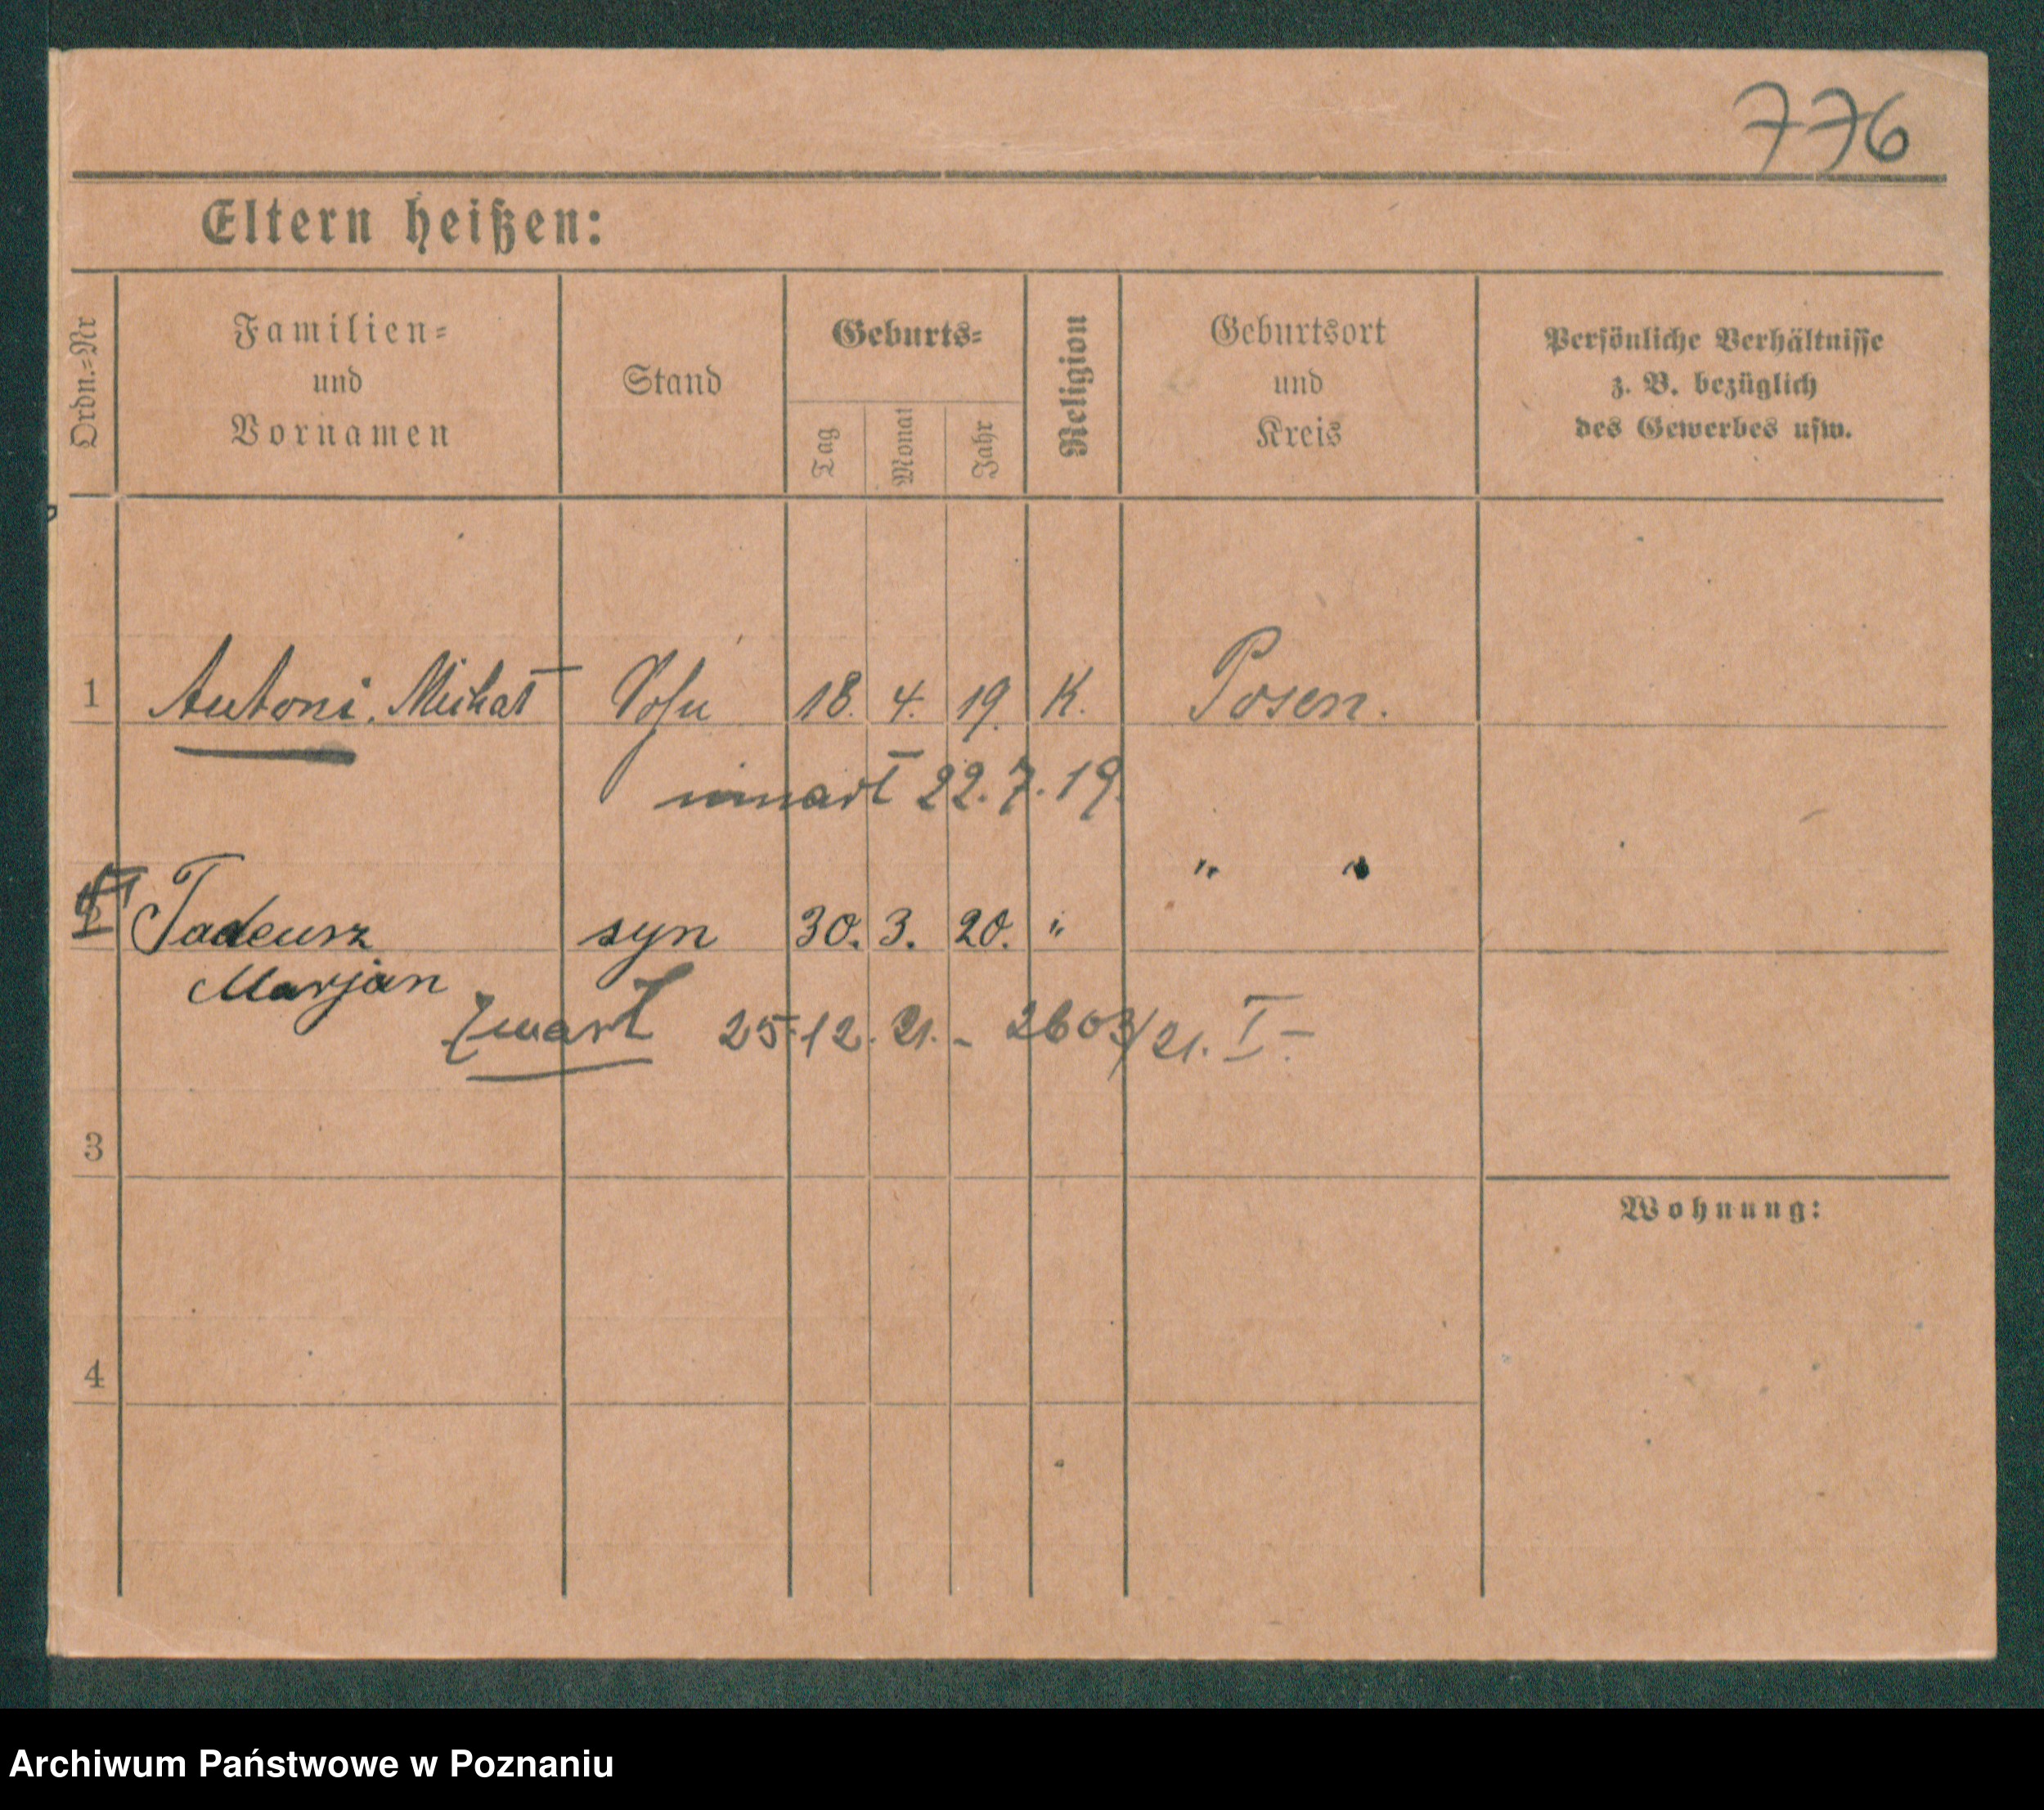 776
Eltern heißen:
Ordn.=Nr
Familien=
und
Vornamen
Stand
Geburts=
Tag
Monat
Jahr
Religion
Geburtsort
und
Kreis
Persönliche Verhältnisse
z. B. bezüglich
des Gewerbes usw.
1 Antoni, Michał Sohn 18. 4. 19. K. Posen.
umarł 22.7.19.
" "
2 Tadeusz syn 30. 3. 20. "
Marjan
Zmarł 25.12.21. - 2603/21. I -
3
Wohnung:
4
Archiwum Państwowe w Poznaniu